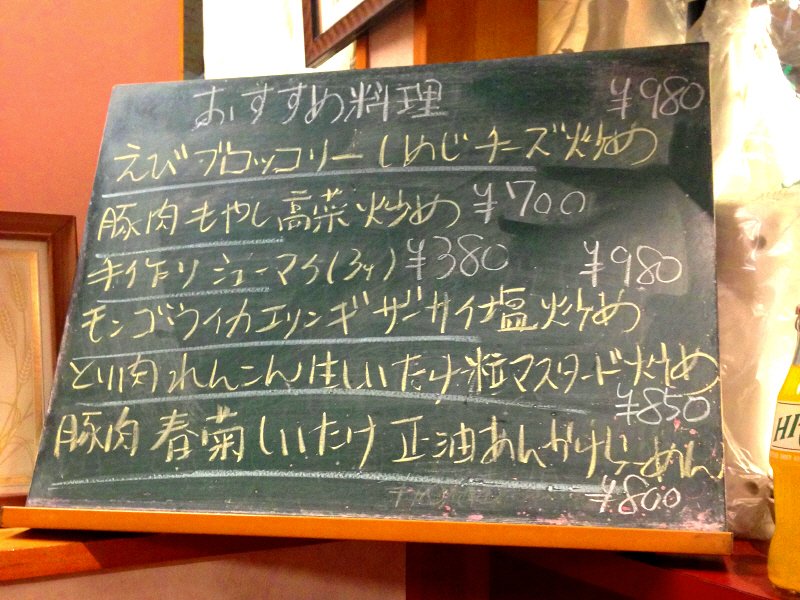 おすすめ料理 ¥980
えび ブロッコリー しめじ チーズ炒め
豚肉 もやし 高菜 炒め ¥700
手作り シューマイ(3ケ) ¥380 ¥980
モンゴウイカ エリンギ ザーサイ 塩 炒め
とり肉 れんこん 生しいたけ 粒マスタード炒め
¥850
豚肉 春菊 しいたけ 正油あんかけらーめん
¥800
HI